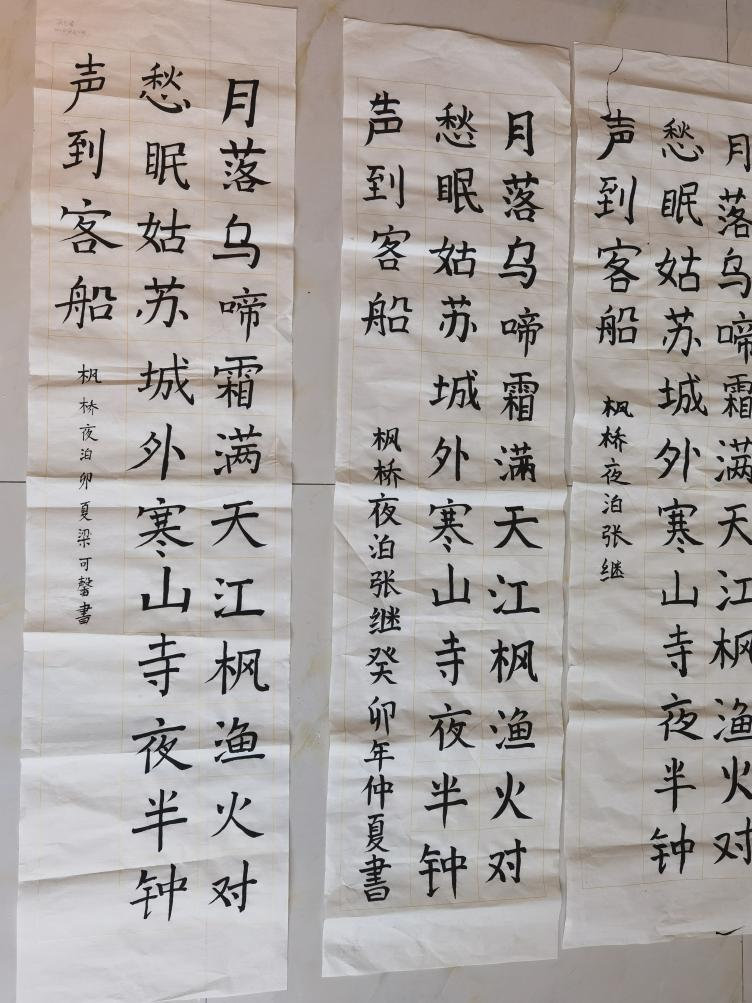 月落乌啼霜满天江枫渔火对
愁眠姑苏城外寒山寺夜半钟
声到客船
枫桥夜泊卯夏梁可馨書
月落乌啼霜满天江枫渔火对
愁眠姑苏城外寒山寺夜半钟
声到客船
枫桥夜泊张继癸卯年仲夏書
月落乌啼霜满天江枫渔火对
愁眠姑苏城外寒山寺夜半钟
声到客船
枫桥夜泊张继